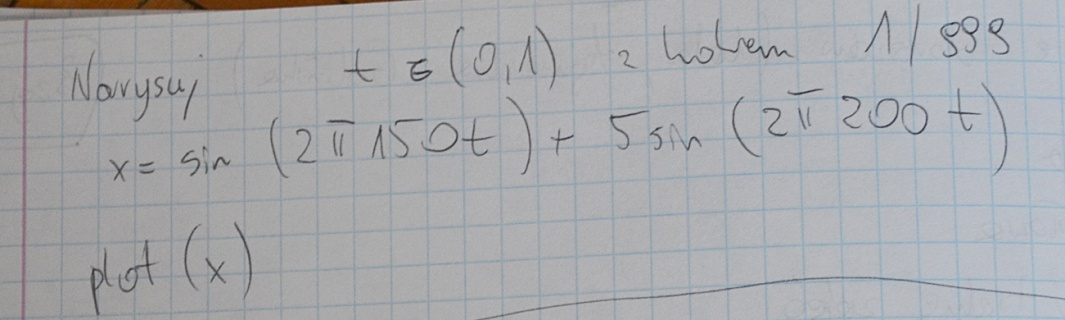 Narysuj t ∈ (0,1) z krokem 1/999
x = sin (2π150t) + 5 sin (2π200t)
plot (x)